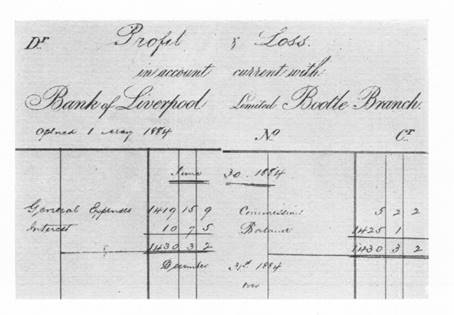 Dr Profit & Loss.
in account current with
Bank of Liverpool Limited Bootle Branch.
Opened 1 May 1884 No Cr
June 30. 1884
General Expenses 1419 15 9 Commission 5 2 2
Interest 10 7 5 Balance 1425 1
1430 3 2 1430 3 2
December 31st 1884